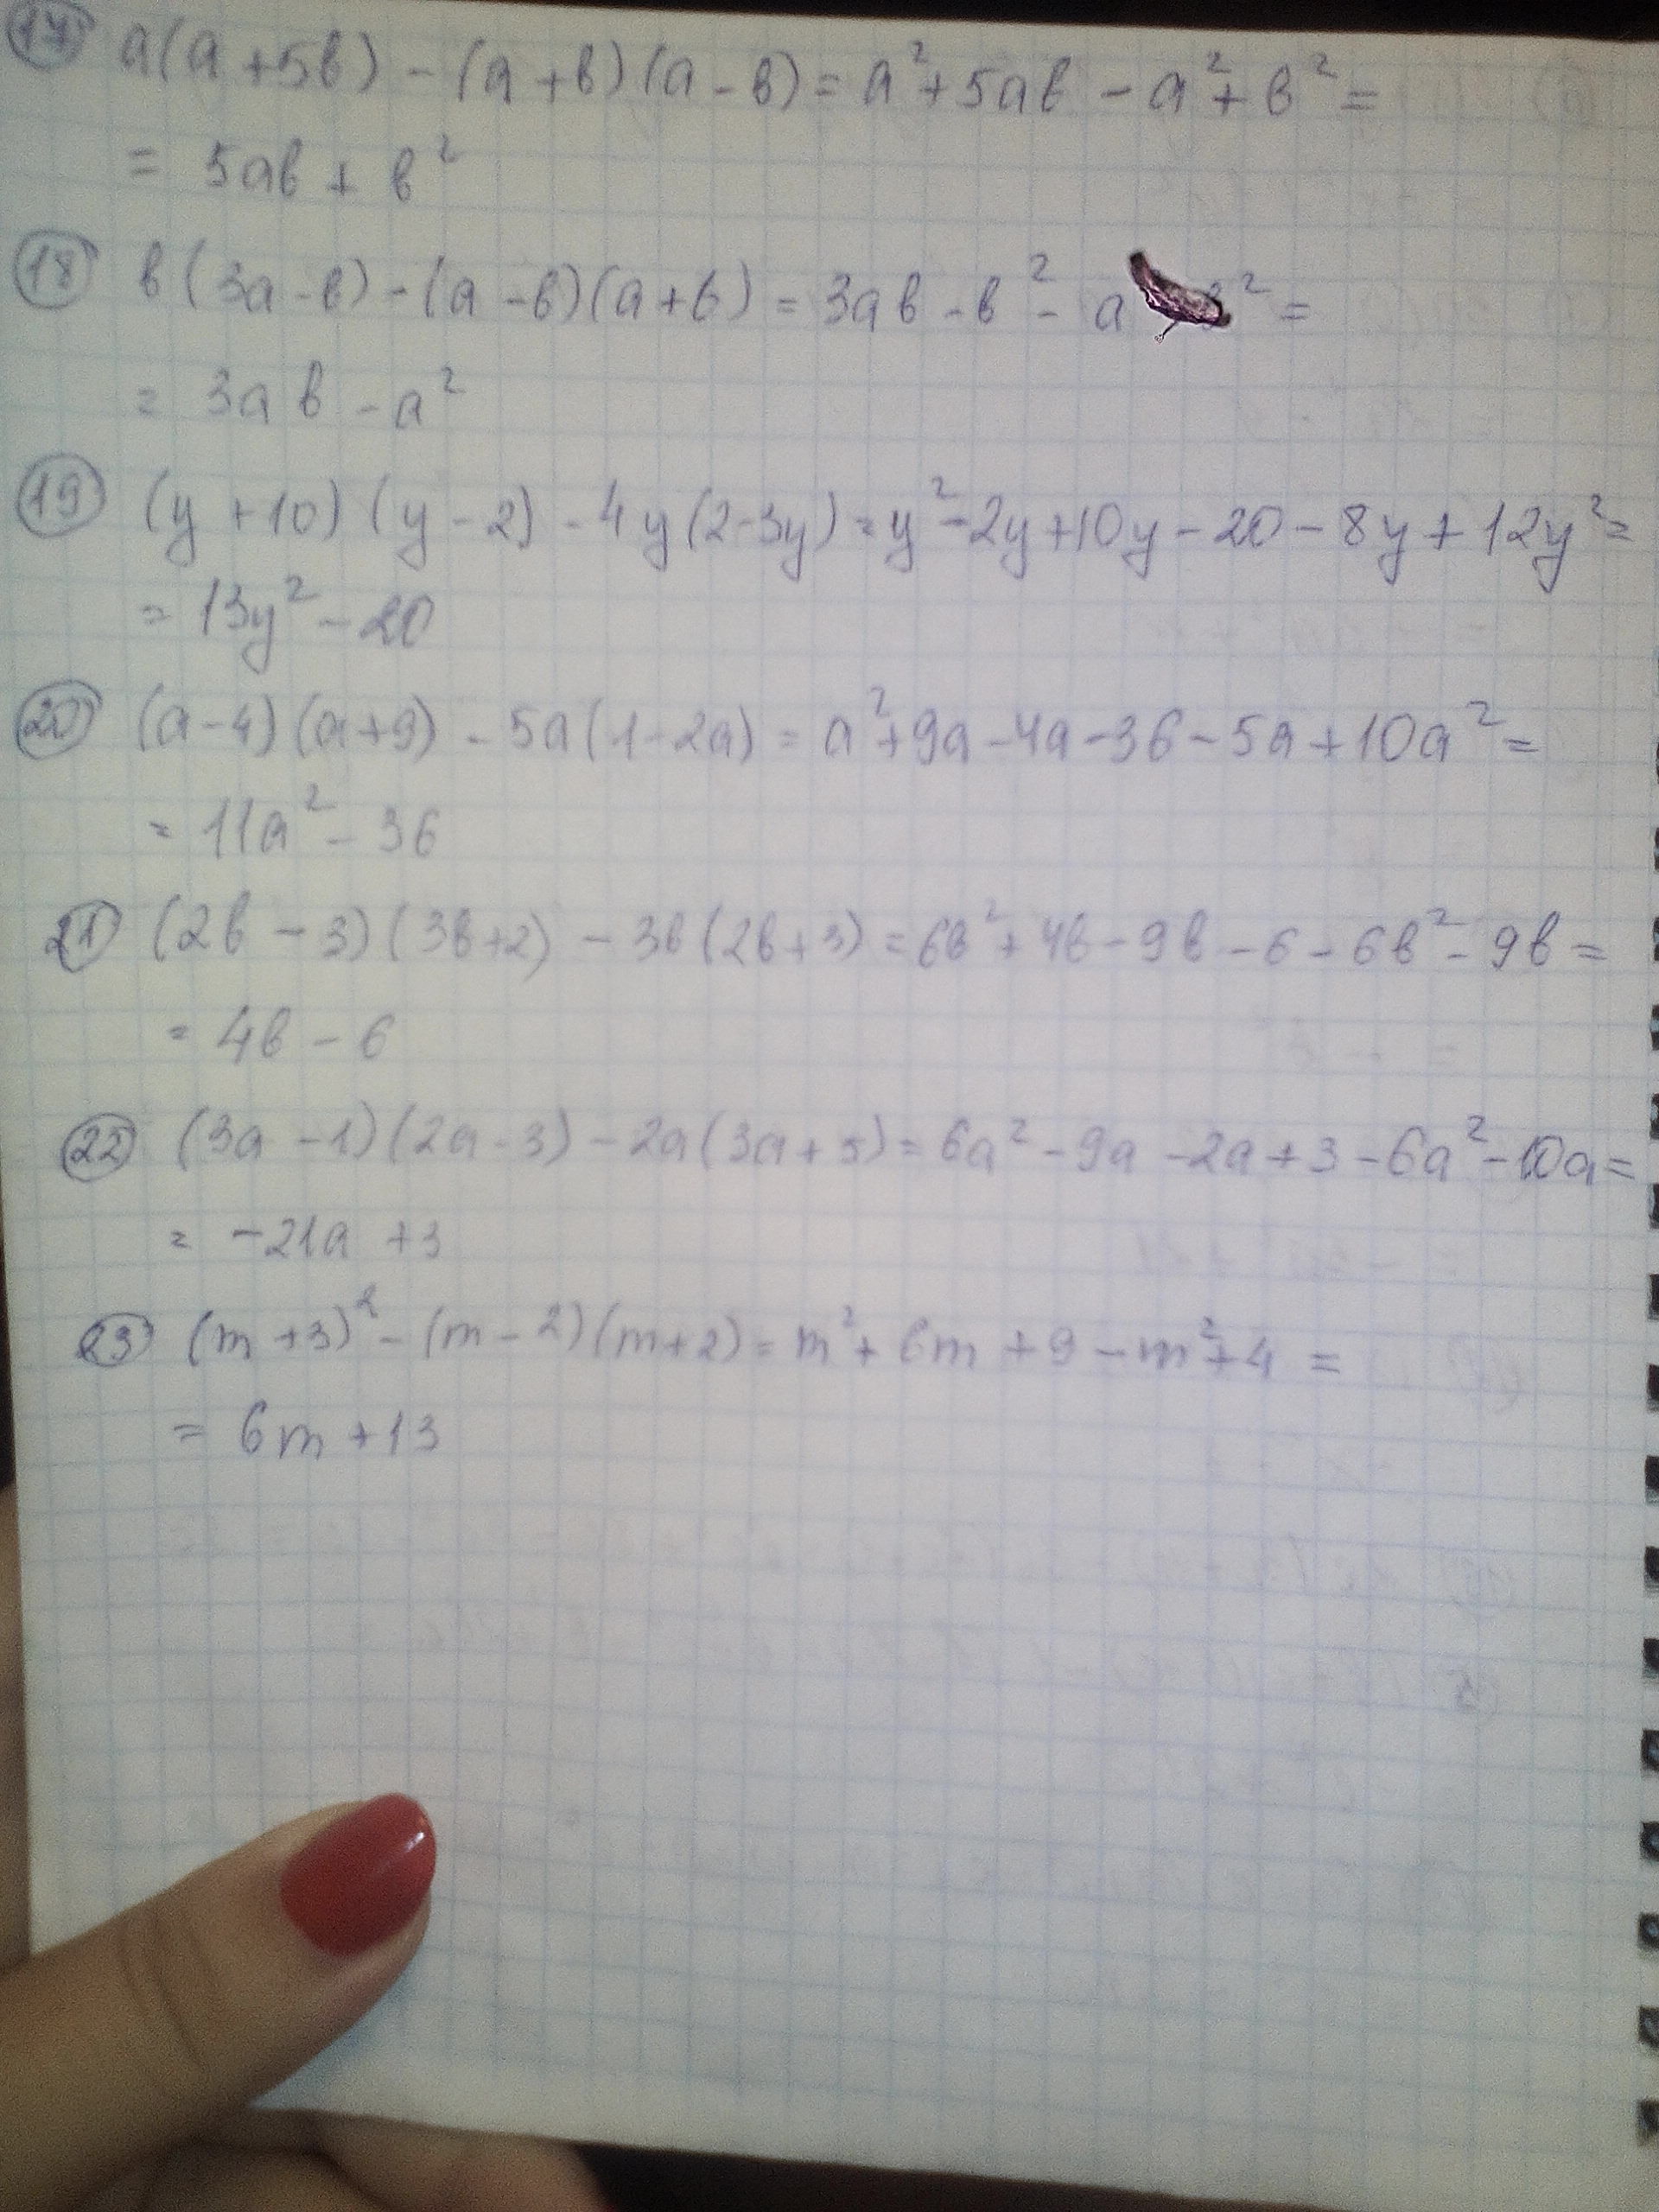 17 a(a+5b) - (a+b)(a-b) = a²+5ab - a²+b² =
= 5ab + b²
18 b(3a-b) - (a-b)(a+b) = 3ab - b² - a ² =
= 3ab - a²
19 (y+10)(y-2) - 4y(2-3y) = y²-2y+10y-20-8y+12y² =
= 13y² - 20
20 (a-4)(a+9) - 5a(1-2a) = a²+9a-4a-36-5a+10a² =
= 11a² - 36
21 (2b-3)(3b+2) - 3b(2b+3) = 6b²+4b-9b-6-6b²-9b =
= 4b - 6
22 (3a-1)(2a-3) - 2a(3a+5) = 6a²-9a-2a+3-6a²-10a =
= -21a + 3
23 (m+3)² - (m-2)(m+2) = m²+6m+9-m²+4 =
= 6m+13